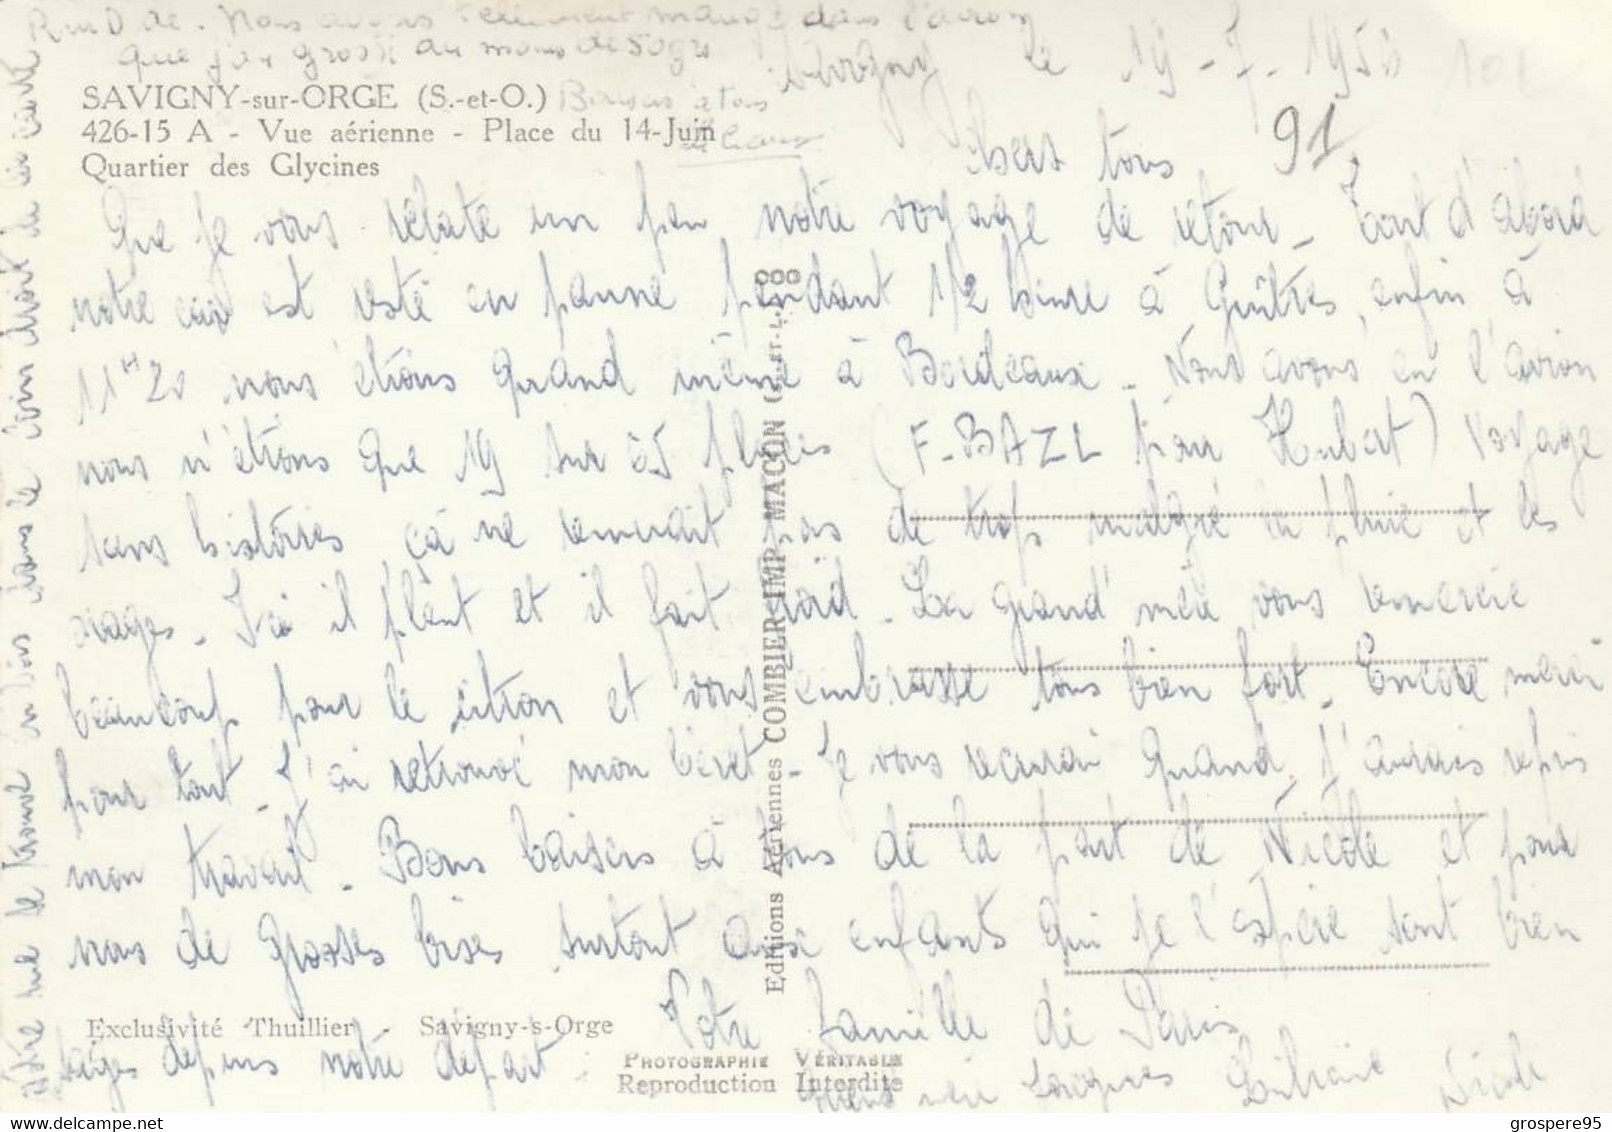 Nous avons tellement mangé dans l'avion
que j'ai grossi au moins de 50 grs
Savigny le 19-7-1956
SAVIGNY-sur-ORGE (S.-et-O.) Baisers à tous
426-15 A - Vue aérienne - Place du 14-Juin
Quartier des Glycines
91
tous
Que je vous relate un peu notre voyage de retour - Tout d'abord
notre car est resté en panne pendant 1/2 heure à Guîtres, enfin à
11H20 nous étions quand même à Bordeaux. Nous avons eu l'avion
nous n'étions que 19 sur places (F-BAZL pour Hubert) Voyage
sans histoires, ça ne remuait pas de trop malgré la pluie et les
orages. Ici il pleut et il fait froid. La grand'mère vous remercie
beaucoup pour le citron et vous embrasse tous bien fort. Encore merci
pour tout. J'ai retrouvé mon béret. Je vous écrirai quand j'aurais repris
mon travail. Bons baisers à tous de la part de Nicole et pour
vous de grosses bises surtout aux enfants qui je l'espère sont bien
sages depuis notre départ.
Votre famille de Paris
Jacques Nicole
Exclusivité Thuillier - Savigny-s-Orge
PHOTOGRAPHIE VÉRITABLE
Reproduction Interdite
Editions Aériennes COMBIER IMP. MACON (S.-ET-L.) COG
Notre rue se trouve en bas dans le coin droit de la carte
grospere95